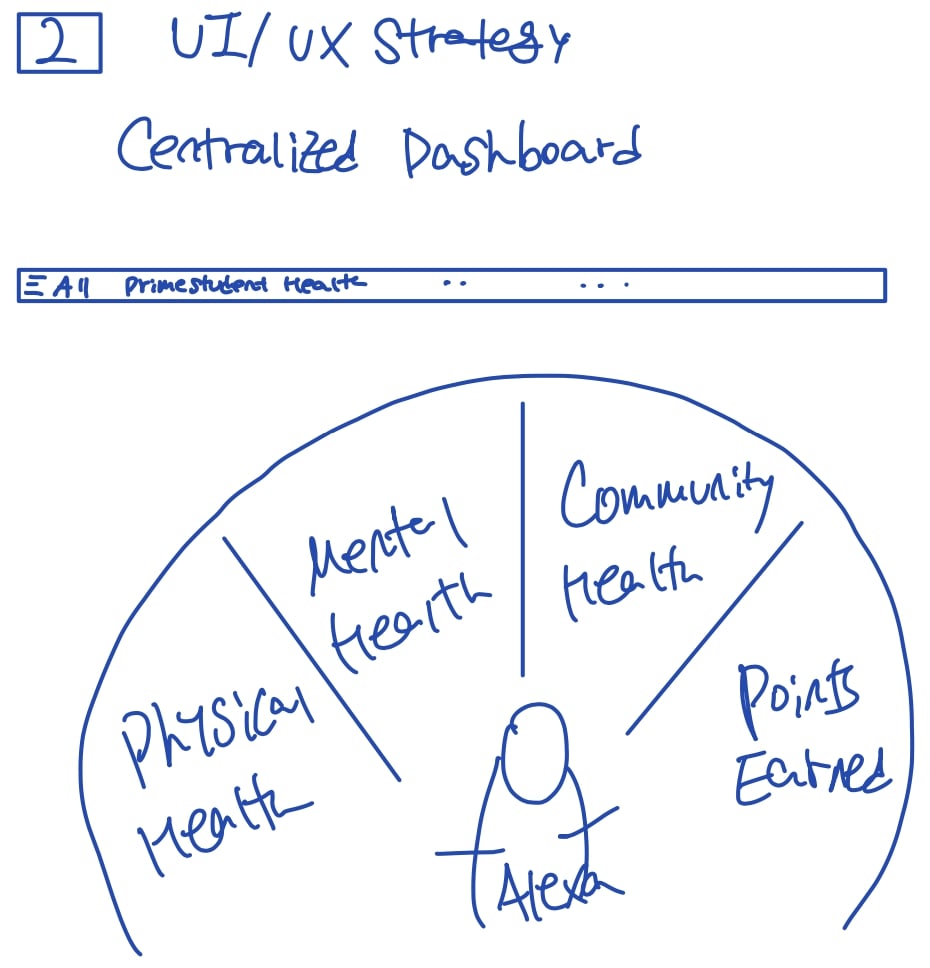 2 UI/UX Strategy
Centralized Dashboard
All Primestudent Health .. ...
Physical
Health
Mental
Health
Community
Health
Points
Earned
Alexa